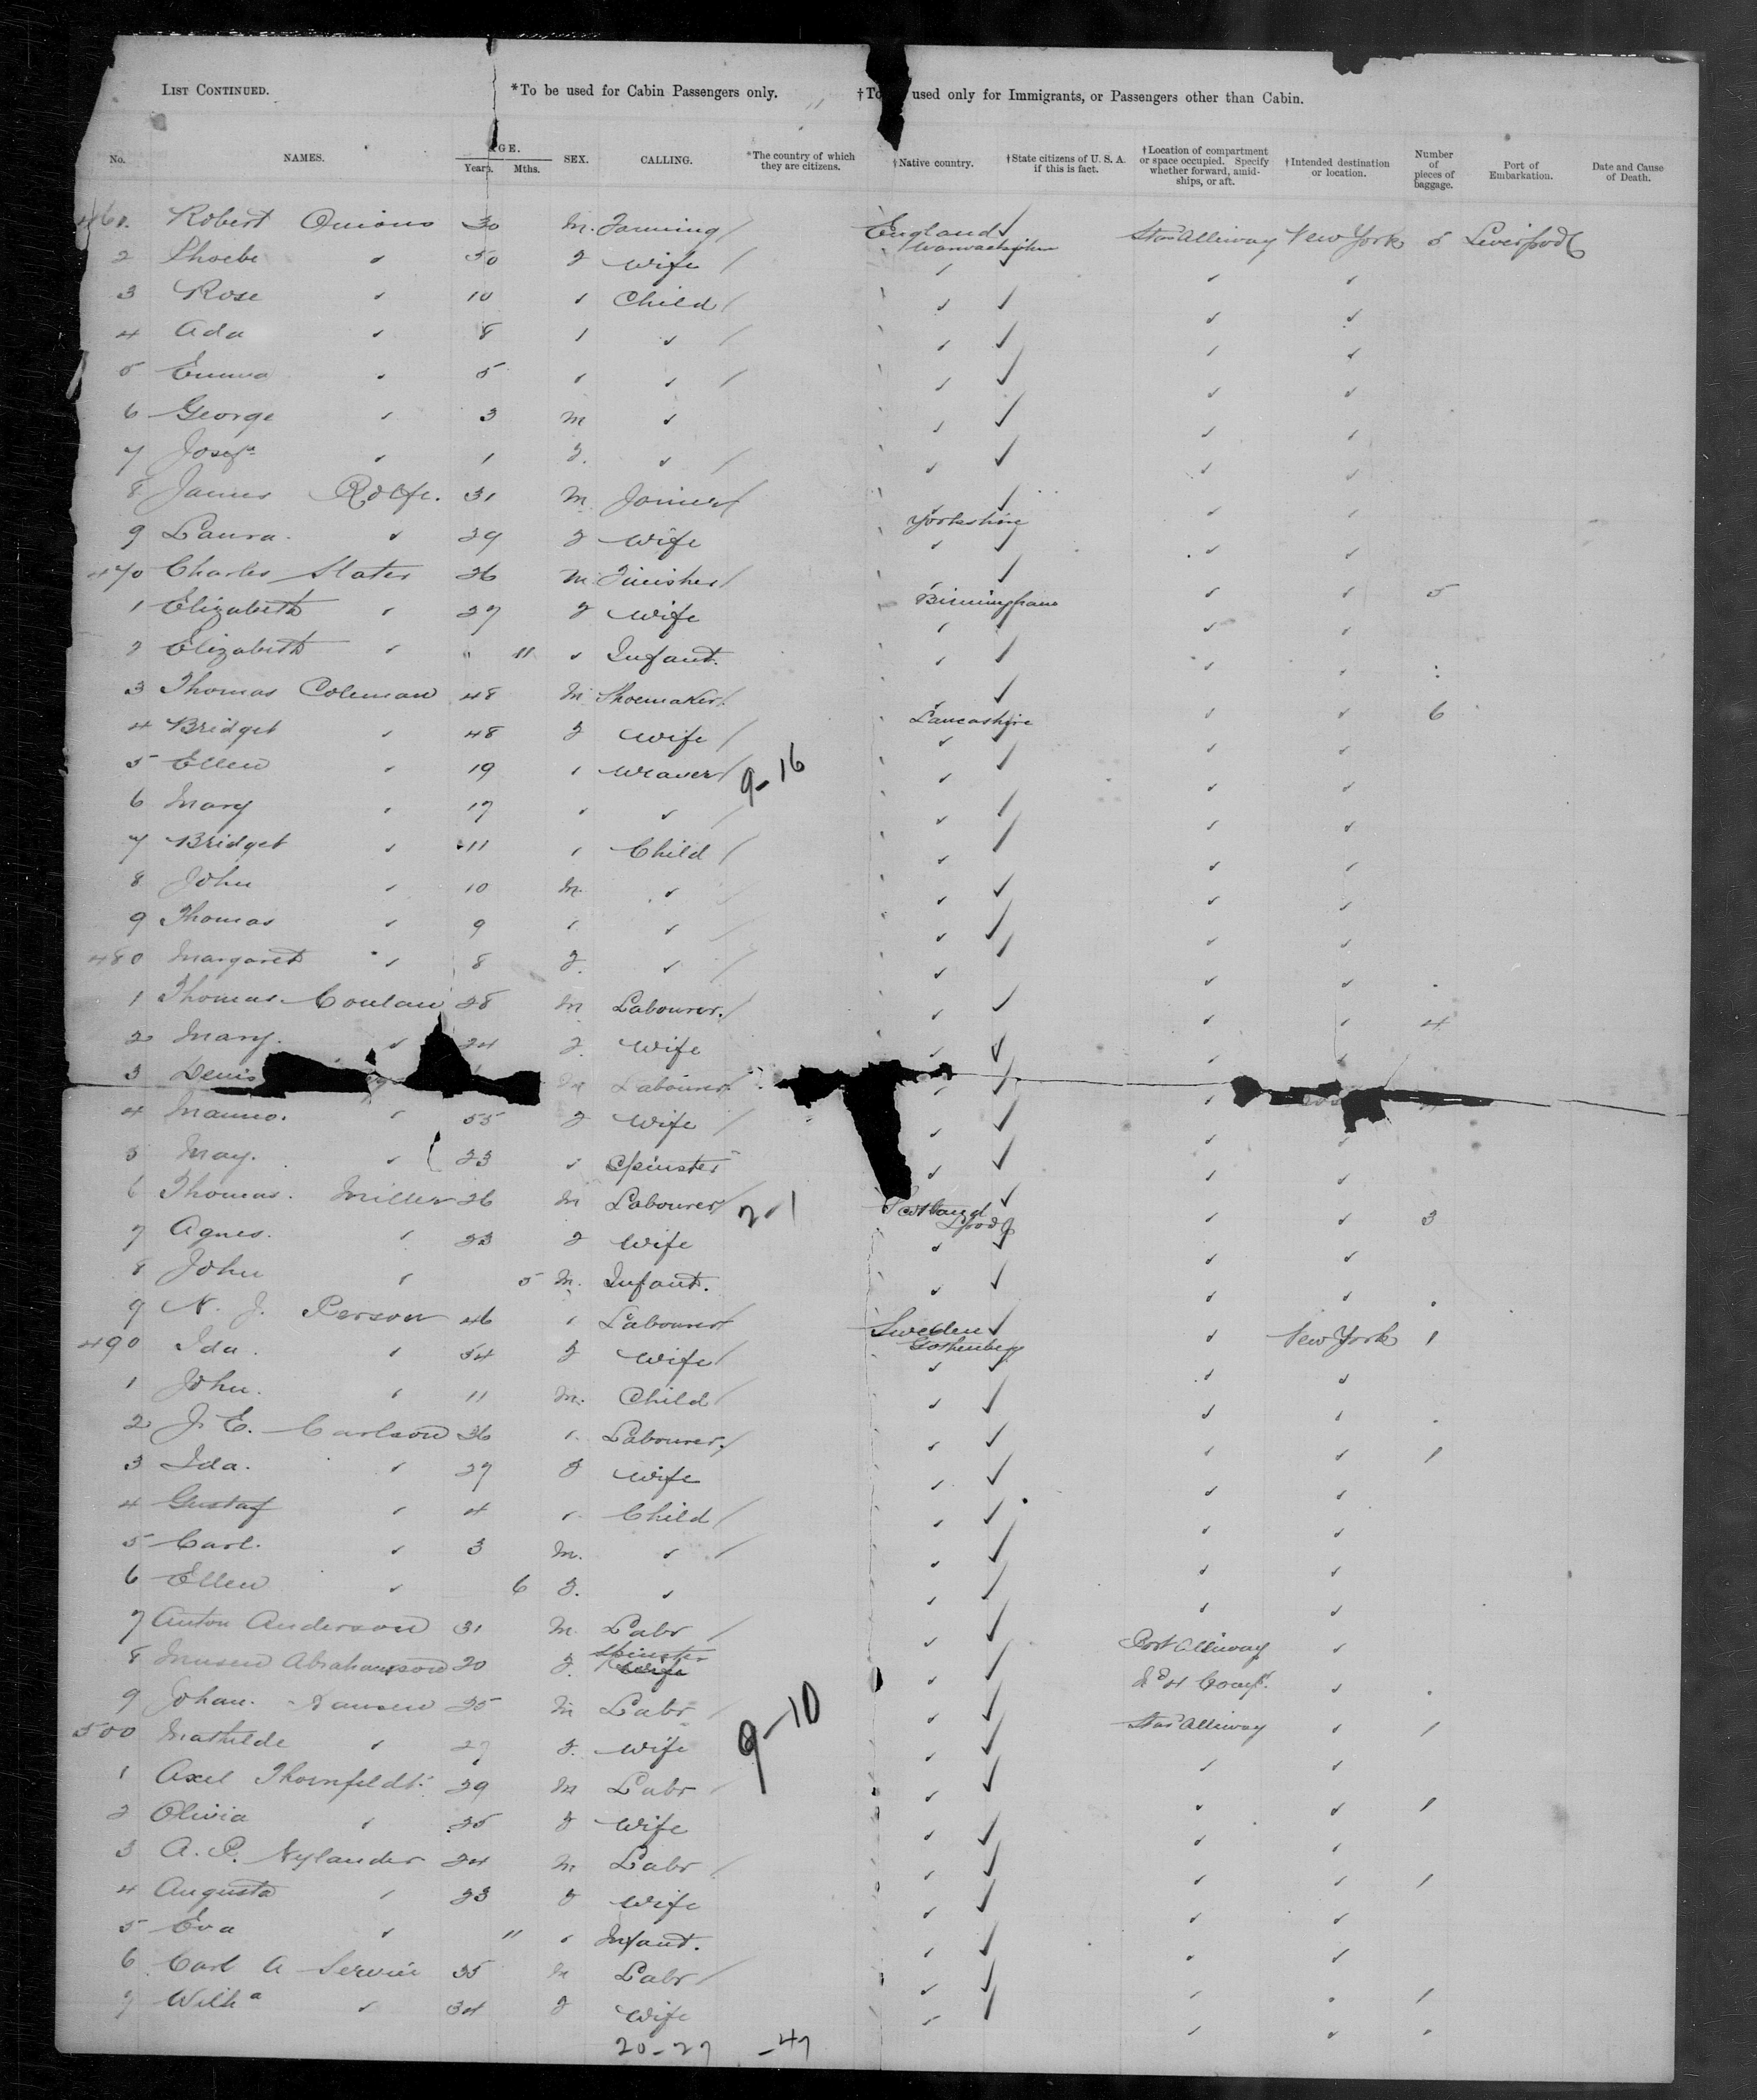 LIST CONTINUED. *To be used for Cabin Passengers only. †To used only for Immigrants, or Passengers other than Cabin.
No. NAMES. AGE. Years. Mths. SEX. CALLING. *The country of which they are citizens. †Native country. †State citizens of U. S. A. if this is fact. †Location of compartment or space occupied. Specify whether forward, amidships, or aft. †Intended destination or location. Number of pieces of baggage. Port of Embarkation. Date and Cause of Death.
Robert Onions 30 M. England New York 5 Liverpool
2 Phoebe " 30 F Wife /
3 Rose " 10 " Child /
4 Ada " 8 " " /
5 Emma " 5 " " /
6 George " 3 M "
7 " 1 F. " /
8 James Rolfe. 31 M Joiner / Yorkshire
9 Laura. " 29 F Wife
470 Charles Slater 26 M Finisher / Birmingham " " 5
1 Elizabeth " 27 F Wife
2 Elizabeth " " 11 " Infant.
3 Thomas Coleman 48 M Shoemaker / Lancashire " " 6
4 Bridget " 48 F Wife /
5 Ellen " 19 " Weaver / 9-16
6 Mary " 17 " " /
7 Bridget " 11 " Child /
8 John " 10 M. "
9 Thomas " 9 " "
480 Margaret " 8 F. " /
1 Thomas 28 M Labourer. / " " 4
2 Mary. " 24 F. Wife
3 Denis M Labourer.
4 " 55 F Wife /
5 May. " 23 " Spinster
6 Thomas. Miller 26 M Labourer / Scotland " " 3
7 Agnes. " 23 F Wife
8 John " 5 M. Infant.
9 N. J. Person 46 " Labourer Sweden Gothenberg " New York 1
490 Ida. " 34 F Wife /
1 John. " 11 M. Child /
2 J. E. Carlson 36 " Labourer. / " " 1
3 Ida. " 27 F Wife
4 Gustaf " 4 " Child /
5 Carl. " 3 M. " /
6 Ellen " 6 F. "
7 Anton Anderson 31 M. Labr / Port Alleiway "
8 Abrahamson 20 F. Spinster
9 Johan. Hansen 25 M Labr / Star Alleiway " 1
500 Mathilde " 27 F. Wife 9-10
1 Axel Thornfeldt. 29 M Labr / " " 1
2 Olivia " 25 F Wife
3 A. P. Nylander 24 M Labr / " " 1
4 Augusta " 23 F Wife
5 Eva " 11 " Infant.
6 Carl A 35 M Labr / " " 1
7 Wilhᵃ " 34 F Wife
20-27 -47